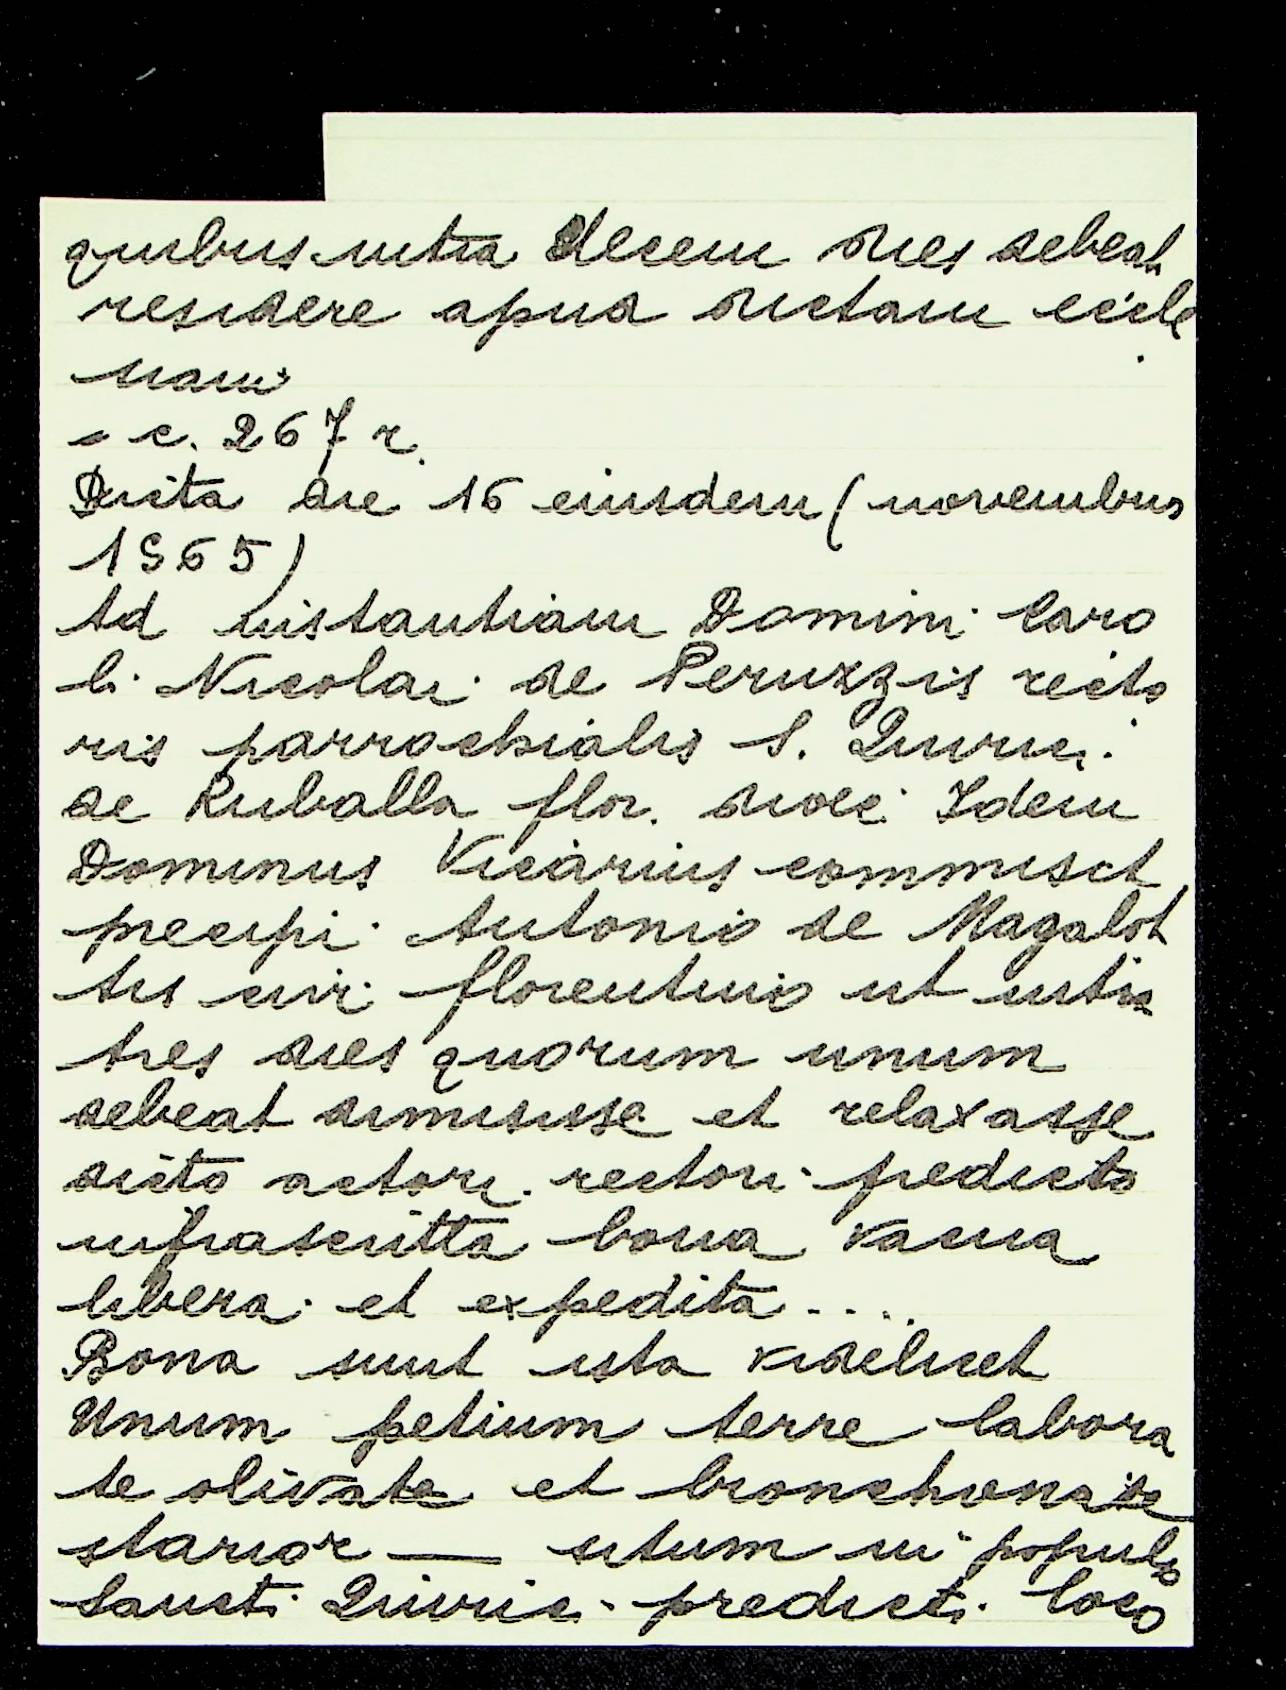 quibus intra decem dies debeat
residere apud dictam eccle
siam
- c. 267 r.
Dicta die 16 eiusdem (novembris
1365)
Ad instantiam Domini Caro
li Nicolai de Peruzzis recto
ris parrochialis S. Quirici
de Ruballa flor. dioc. Idem
Dominus Vicarius commisit
precipi Antonio de Magalot
tis civi florentino ut intra
tres dies quorum unum
debeat dimisisse et relaxasse
dicto actori rectori predicto
infrascritta bona vacua
libera et expedita ....
Bona sunt ista videlicet
Unum petium terre labora
te olivate et bronchonate
starior — situm in populo
Sancti Quirici predicti loco